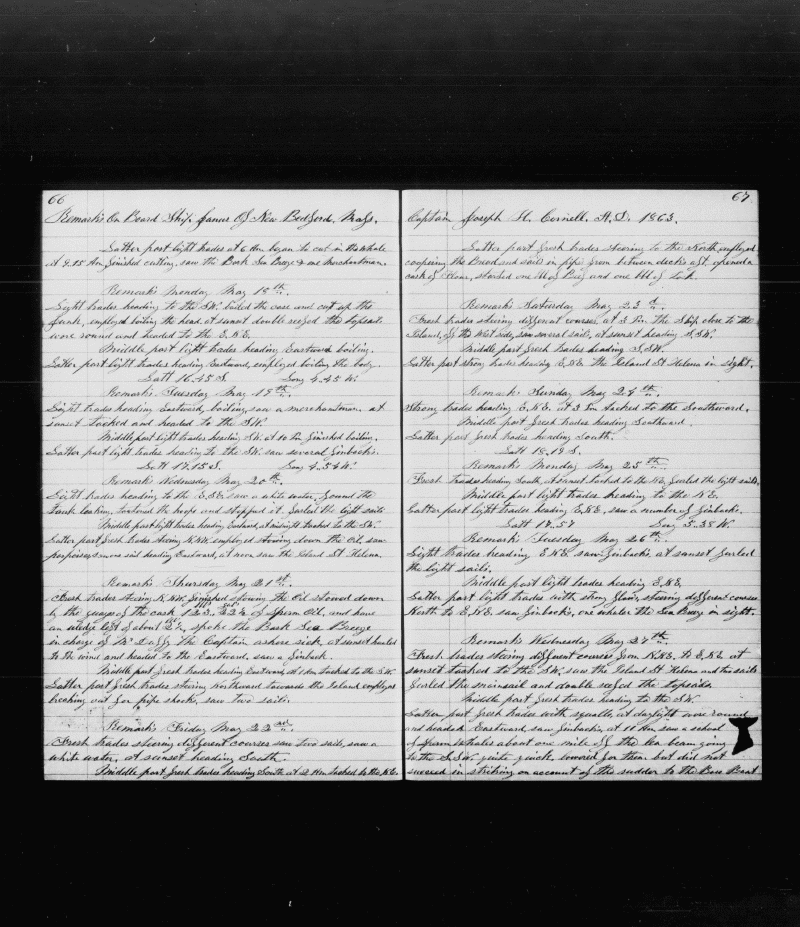 66
Remarks On Board Ship Janus Of New Bedford, Mass.
Latter part light trades at 6 Am began to cut in the whale
at 9.15 Am finished cutting, saw the Bark Sea Breeze & one merchantman.
Remarks Monday May 18th.
Light trades heading to the S.W. boiled the case and cut up the
junk, employed boiling the head, at sunset double reefed the topsails
wore round and headed to the E.N.E.
Middle part light trades heading Eastward boiling.
Latter part light trades heading Eastward, employed boiling the body.
Latt 16.45 S. Long 4.45 W.
Remarks Tuesday May 19th.
Light trades heading Eastward, boiling, saw a merchantman, at
sunset tacked and headed to the S.W.
Middle part light trades heading S.W. at 10 Am finished boiling.
Latter part light trades heading to the S.W. saw several finbacks.
Latt 17.15 S. Long 4.54 W.
Remarks Wednesday May 20th.
Light trades heading to the E.S.E. saw a white water, found the
tank leaking, tightened the hoops and stopped it. furled the light sails
Middle part light trades heading Eastward, at midnight tacked to the S.W.
Latter part fresh trades steering N.N.W. employed stowing down the Oil, saw
porpoises, & more sail heading Eastward, at noon saw the Island St Helena.
Remarks Thursday May 21st.
Fresh trades steering N.N.W. finished stowing the Oil stowed down
by the guages of the cask of Sperm Oil, and have
left about spoke the Bark Sea Breeze
in charge of Mr the Captain ashore sick, at sunset hauled
to the wind and headed to the Eastward, saw a finback.
Middle part fresh trades heading Eastward, at 1 Am tacked to the S.W.
Latter part fresh trades steering Northward towards the Island employed
breaking out for pipe shooks, saw two sails.
Remarks Friday May 22nd.
Fresh trades steering different courses saw two sails, saw a
white water, at sunset heading South.
Middle part fresh trades heading South at 2 Am tacked to the N.E.
67
Captain Joseph H. Cornell. A.D. 1863.
Latter part fresh trades steering to the North, employed
coopering the Bread, and saws in pipe from between decks aft. opened a
cask of Flour, started one bbl of Beef and one bbl of Pork.
Remarks Saturday May 23d.
Fresh trades steering different courses, at 3 Pm. the Ship close to the
Island, off the West side, saw several sail, at sunset heading S.S.W.
Middle part fresh trades heading S.S.W.
Latter part strong trades heading E.N.E. the Island St Helena in sight.
Remarks Sunday May 24th.
Strong trades heading E.N.E. at 3 Pm tacked to the Southward.
Middle part fresh trades heading Southward.
Latter part fresh trades heading South.
Latt 18.19 S.
Remarks Monday May 25th.
Fresh trades heading South, at sunset tacked to the N.E. furled the light sails.
Middle part light trades heading to the N.E.
Latter part light trades heading E.N.E. saw a number of finbacks.
Latt 17.57 Long 5.35 W.
Remarks Tuesday May 26th.
Light trades heading E.N.E. saw finbacks, at sunset furled
the light sails.
Middle part light trades heading E.N.E.
Latter part light trades with strong flaws, steering different courses
North to E.N.E. saw finbacks, one whaler the Sea Breeze in sight.
Remarks Wednesday May 27th.
Fresh trades steering different courses from N.N.E. to E.N.E. at
sunset tacked to the S.W. saw the Island St Helena and two sails
furled the mainsail and double reefed the topsails.
Middle part fresh trades heading to the S.W.
Latter part fresh trades with squalls, at daylight wore round
and headed Eastward, saw finbacks, at 11 Am saw a school
of Sperm whales about one mile off the lea beam going
to the S.S.W. quite quick, lowered for them but did not
succeed in striking on account of the rudder to the Bow Boat